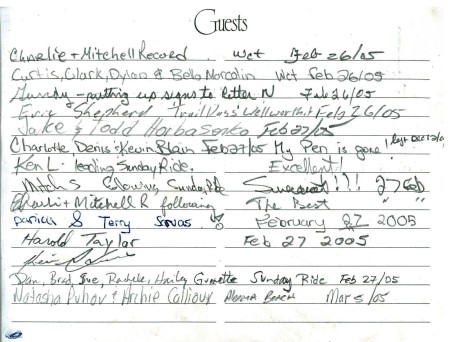 Guests
Charlie + Mitchell Record wet Feb 26/05
Curtis, Clark, Dylan & Bella Marcolin Wet Feb 26/05
putting up signs to letter N Feb 26/05
Eric Shepherd Trail Pass Well worth it Feb 26/05
Jake & Todd Horbasenko Feb 27/05
Charlotte Denis & Kevin Blain Feb 27/05 My Pen is gone
Ken L. leading Sunday Ride. Excellent!
Mitch S Sunday Ride !!! 27 Feb
Charlie + Mitchell R following The Best " "
Patricia & Terry February 27 2005
Harold Taylor Feb 27 2005
Dan, Brad, Sue, Rachelle, Hailey Sunday Ride Feb 27/05
Natasha Puhov & Archie Callioux Mar 5/05